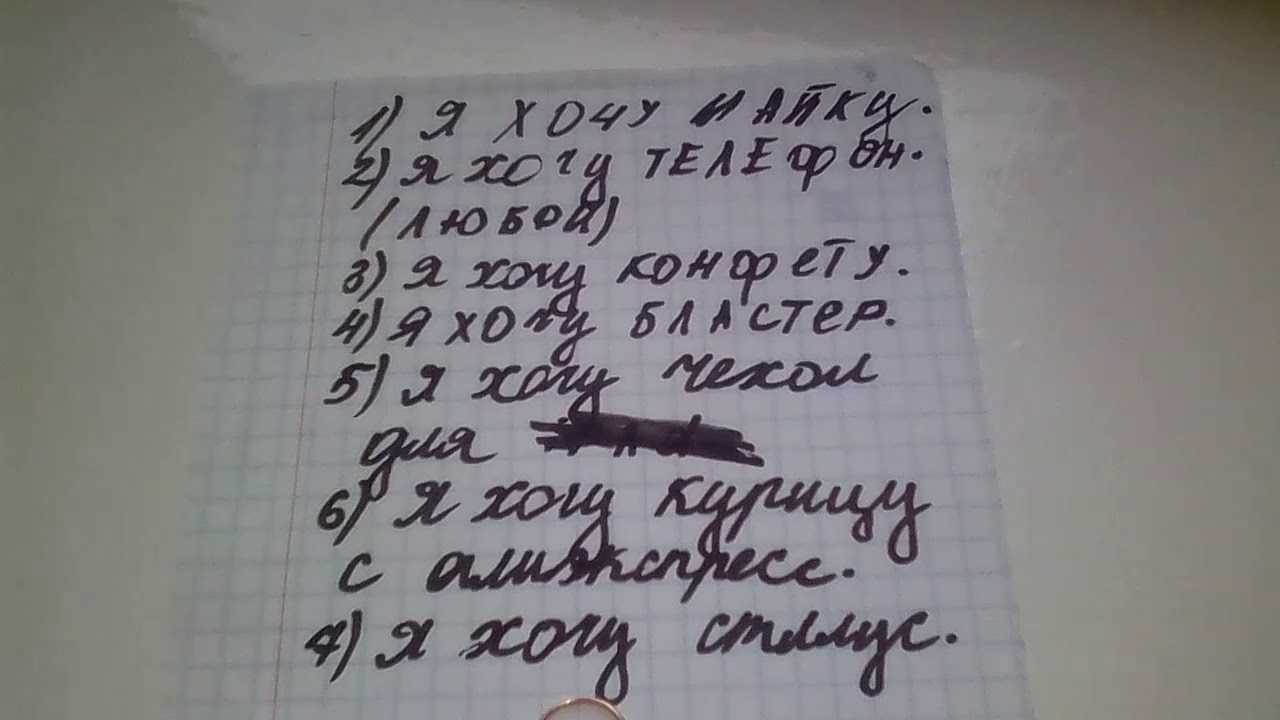 1) Я ХОЧУ МАЙКУ.
2) Я хочу ТЕЛЕФОН.
(ЛЮБОЙ)
3) Я хочу КОНФЕТУ.
4) Я ХОЧУ БЛАСТЕР.
5) Я хочу чехол
для
6) Я хочу курицу
с алиэкспресс.
7) Я хочу стилус.